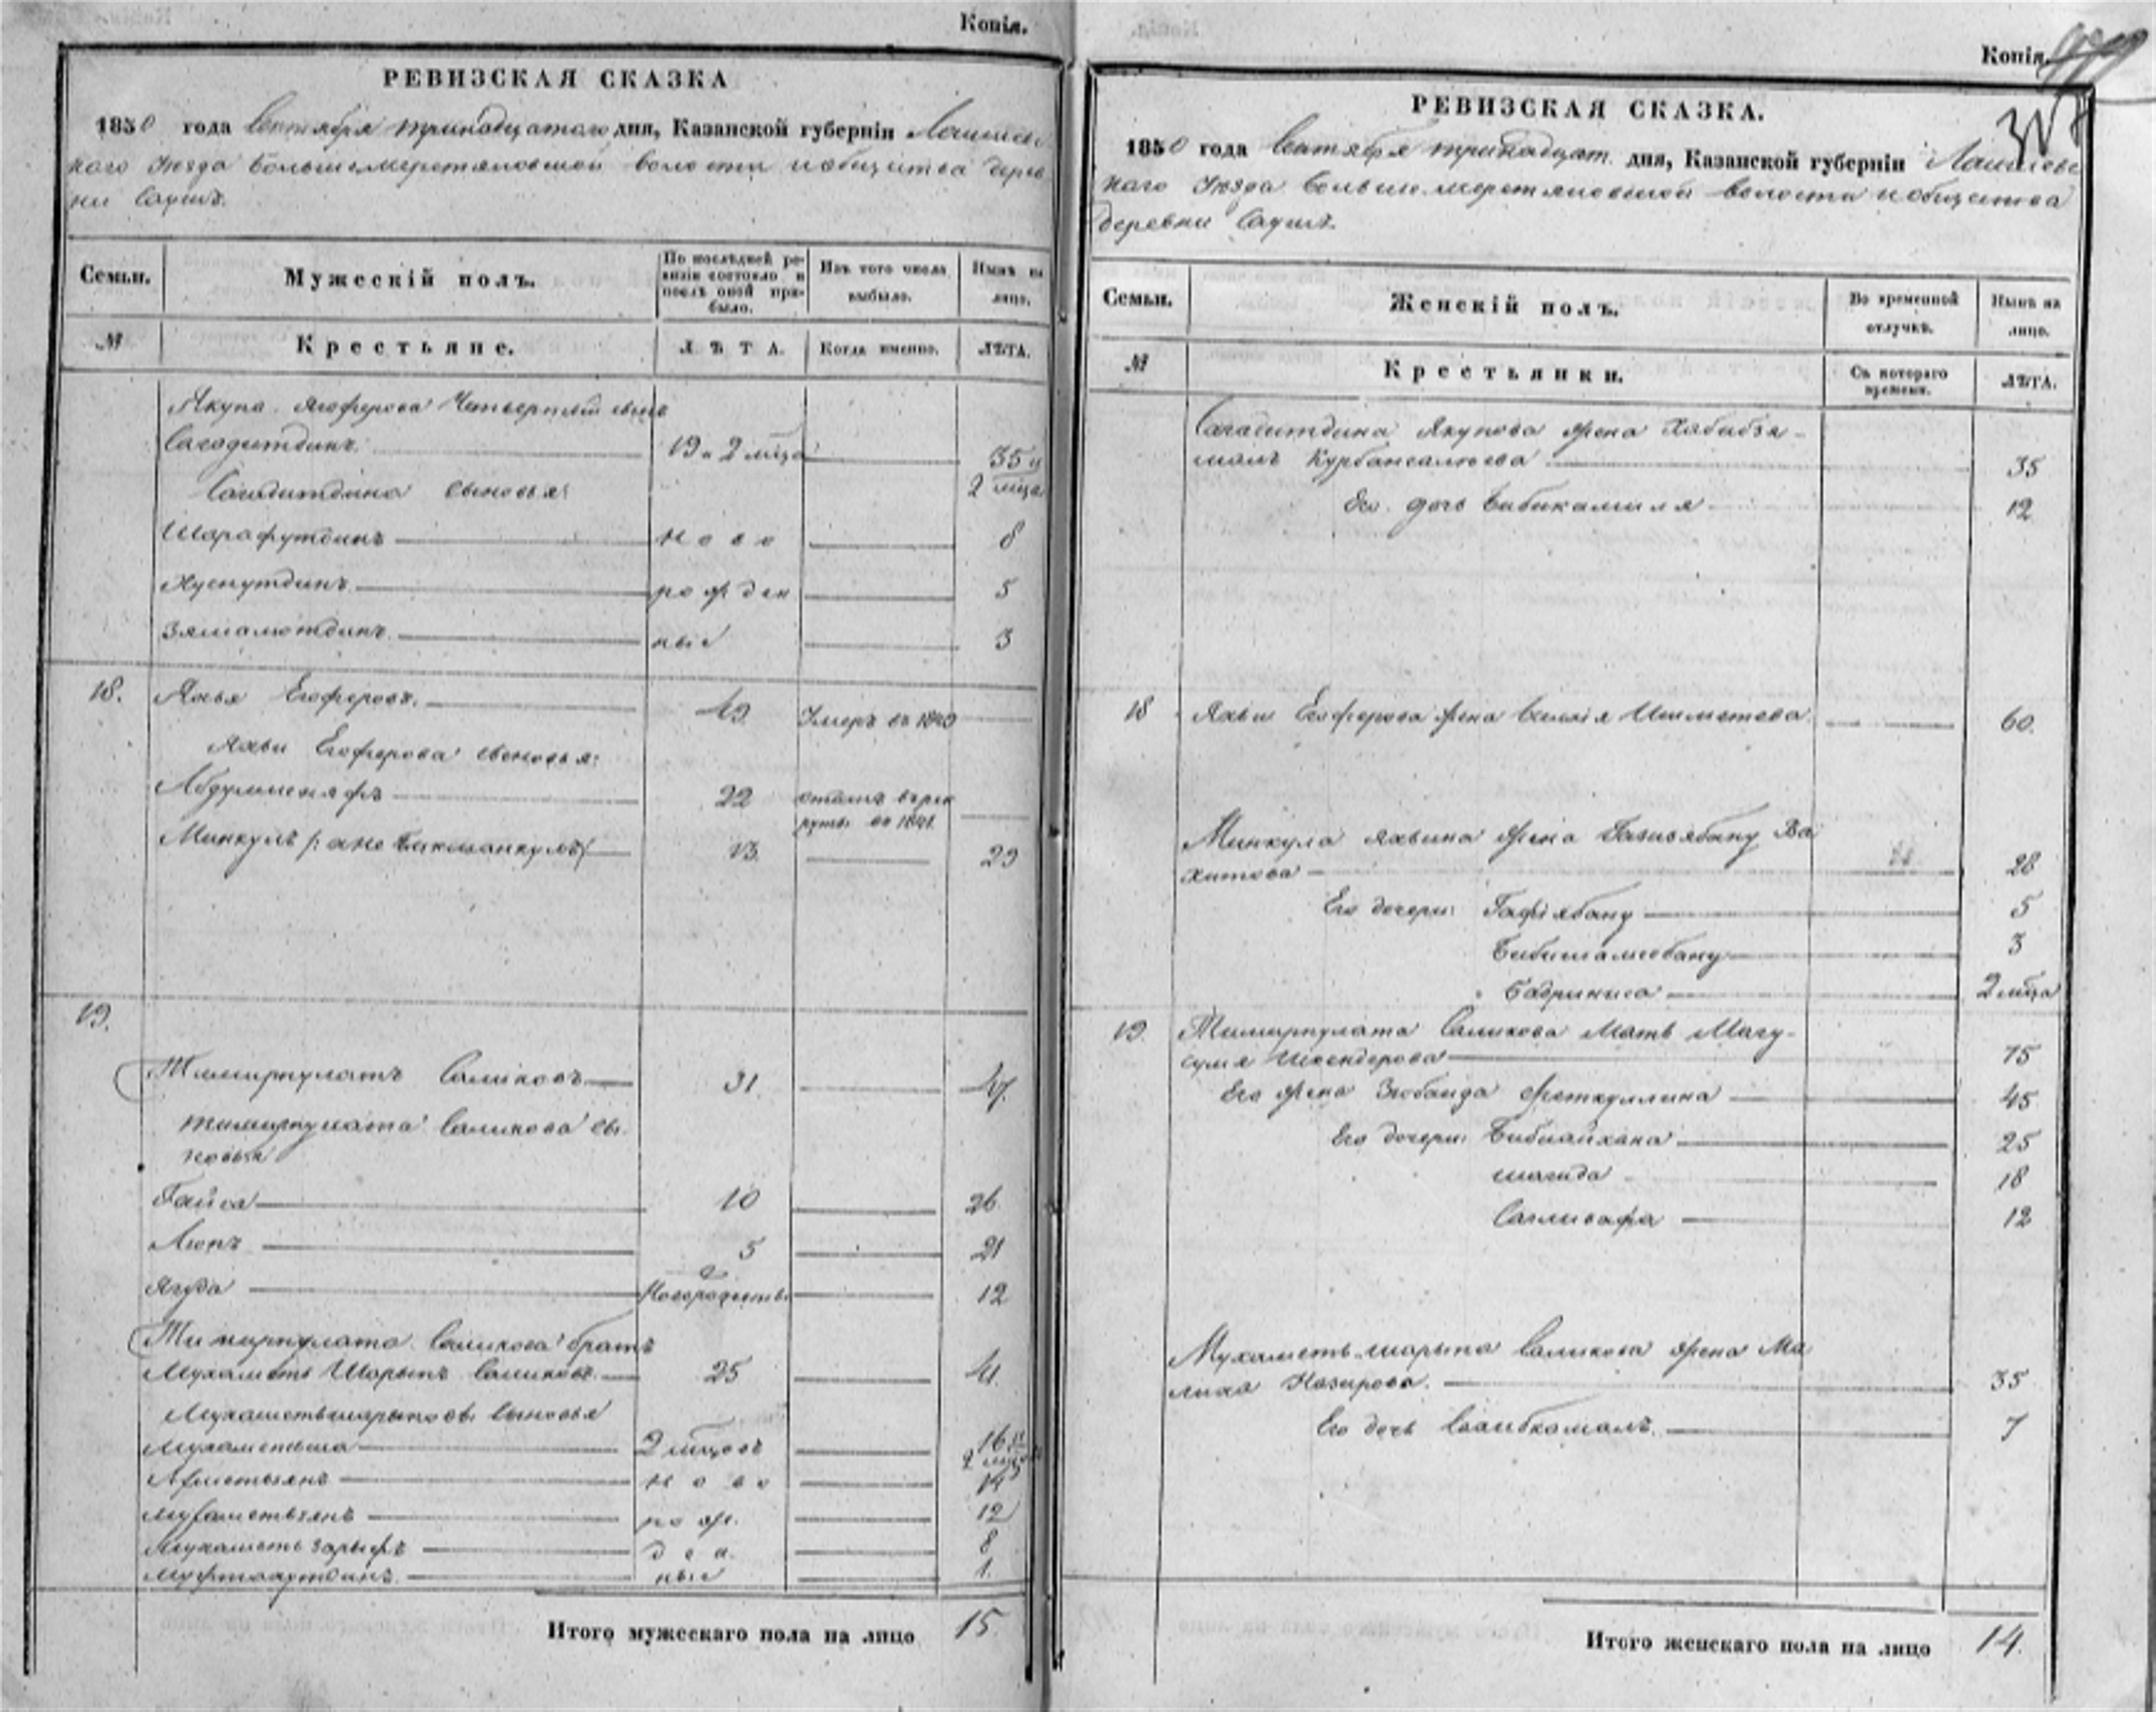 Копія.
РЕВИЗСКАЯ СКАЗКА
1850 года Сентября тринадцатаго дня, Казанской губерніи Лаишевс
каго уезда Большемеретяковской волости и общества дерев
ни Саушъ.
Семьи.
Мужескій полъ.
По послѣдней ре-
визіи состояло и
послѣ оной при-
было.
Изъ того числа
выбыло.
Нынѣ на
лицо.
№
Крестьяне.
ЛѢТА.
Когда именно.
ЛѢТА.
Якупа Ягоферова Четвертый сынъ
Сагадитдинъ. 19 и 2 мца 35 и
2 мца
Сагадитдина сыновья:
Шарафутдинъ ново 8
Хуснутдинъ рожден 5
Зямалютдинъ ные 3
18. Яхья Егоферовъ. 49 Умеръ въ 1849
Яхьи Егоферова сыновья:
22 отданъ въ рек
руты въ 1841
Минкулъ 13. 29
19.
Тимирпулатъ Салиховъ 31. 47.
Тимирпулата Салихова сы
новья
Гайса 10 26
Аюпъ 5 21
Ягуда Новорожденъ 12
Тимирпулата Салихова братъ
Мухаметь Шарыпъ Салиховъ 25 41.
Мухаметьшарыповы сыновья
Мухаметьша 2 мцовъ 16 и
2 мца
Ахметьзянъ ново 14
Мухаметьзянъ рож. 12
Мухаметь Зарыфъ ден 8
Муфтахутдинъ ные 1.
Итого мужескаго пола на лицо 15.
Копія.
РЕВИЗСКАЯ СКАЗКА.
1850 года Сентября тринадцат. дня, Казанской губерніи Лаишевс
каго уезда Больше меретяковской волости и общества
деревни Саушъ.
Семьи.
Женскій полъ.
Во временной
отлучкѣ.
Нынѣ на
лицо.
№
Крестьянки.
Съ котораго
времени.
ЛѢТА.
Сагадитдина Якупова жена Хабибзя-
малъ Курбангалеева 35
Его дочь Бибикамиля 12
18 Яхьи Егоферова жена Ишметева 60.
Минкула Яхьина жена Газизябану Ва
хитова 28
Его дочери: Гафіябану 5
Бибишамсобану 3
Бадриниса 2 мца
19. Тимирпулата Салихова Мать Магу-
сумя Искендерова 75
Его жена Зюбаида Феткуллина 45
Его дочери: Бибиайхана 25
Шагида 18
Саглисафа 12
Мухаметь шарыпа Салихова жена Ма
лика Назирова. 35
Его дочь 7
Итого женскаго пола на лицо 14.